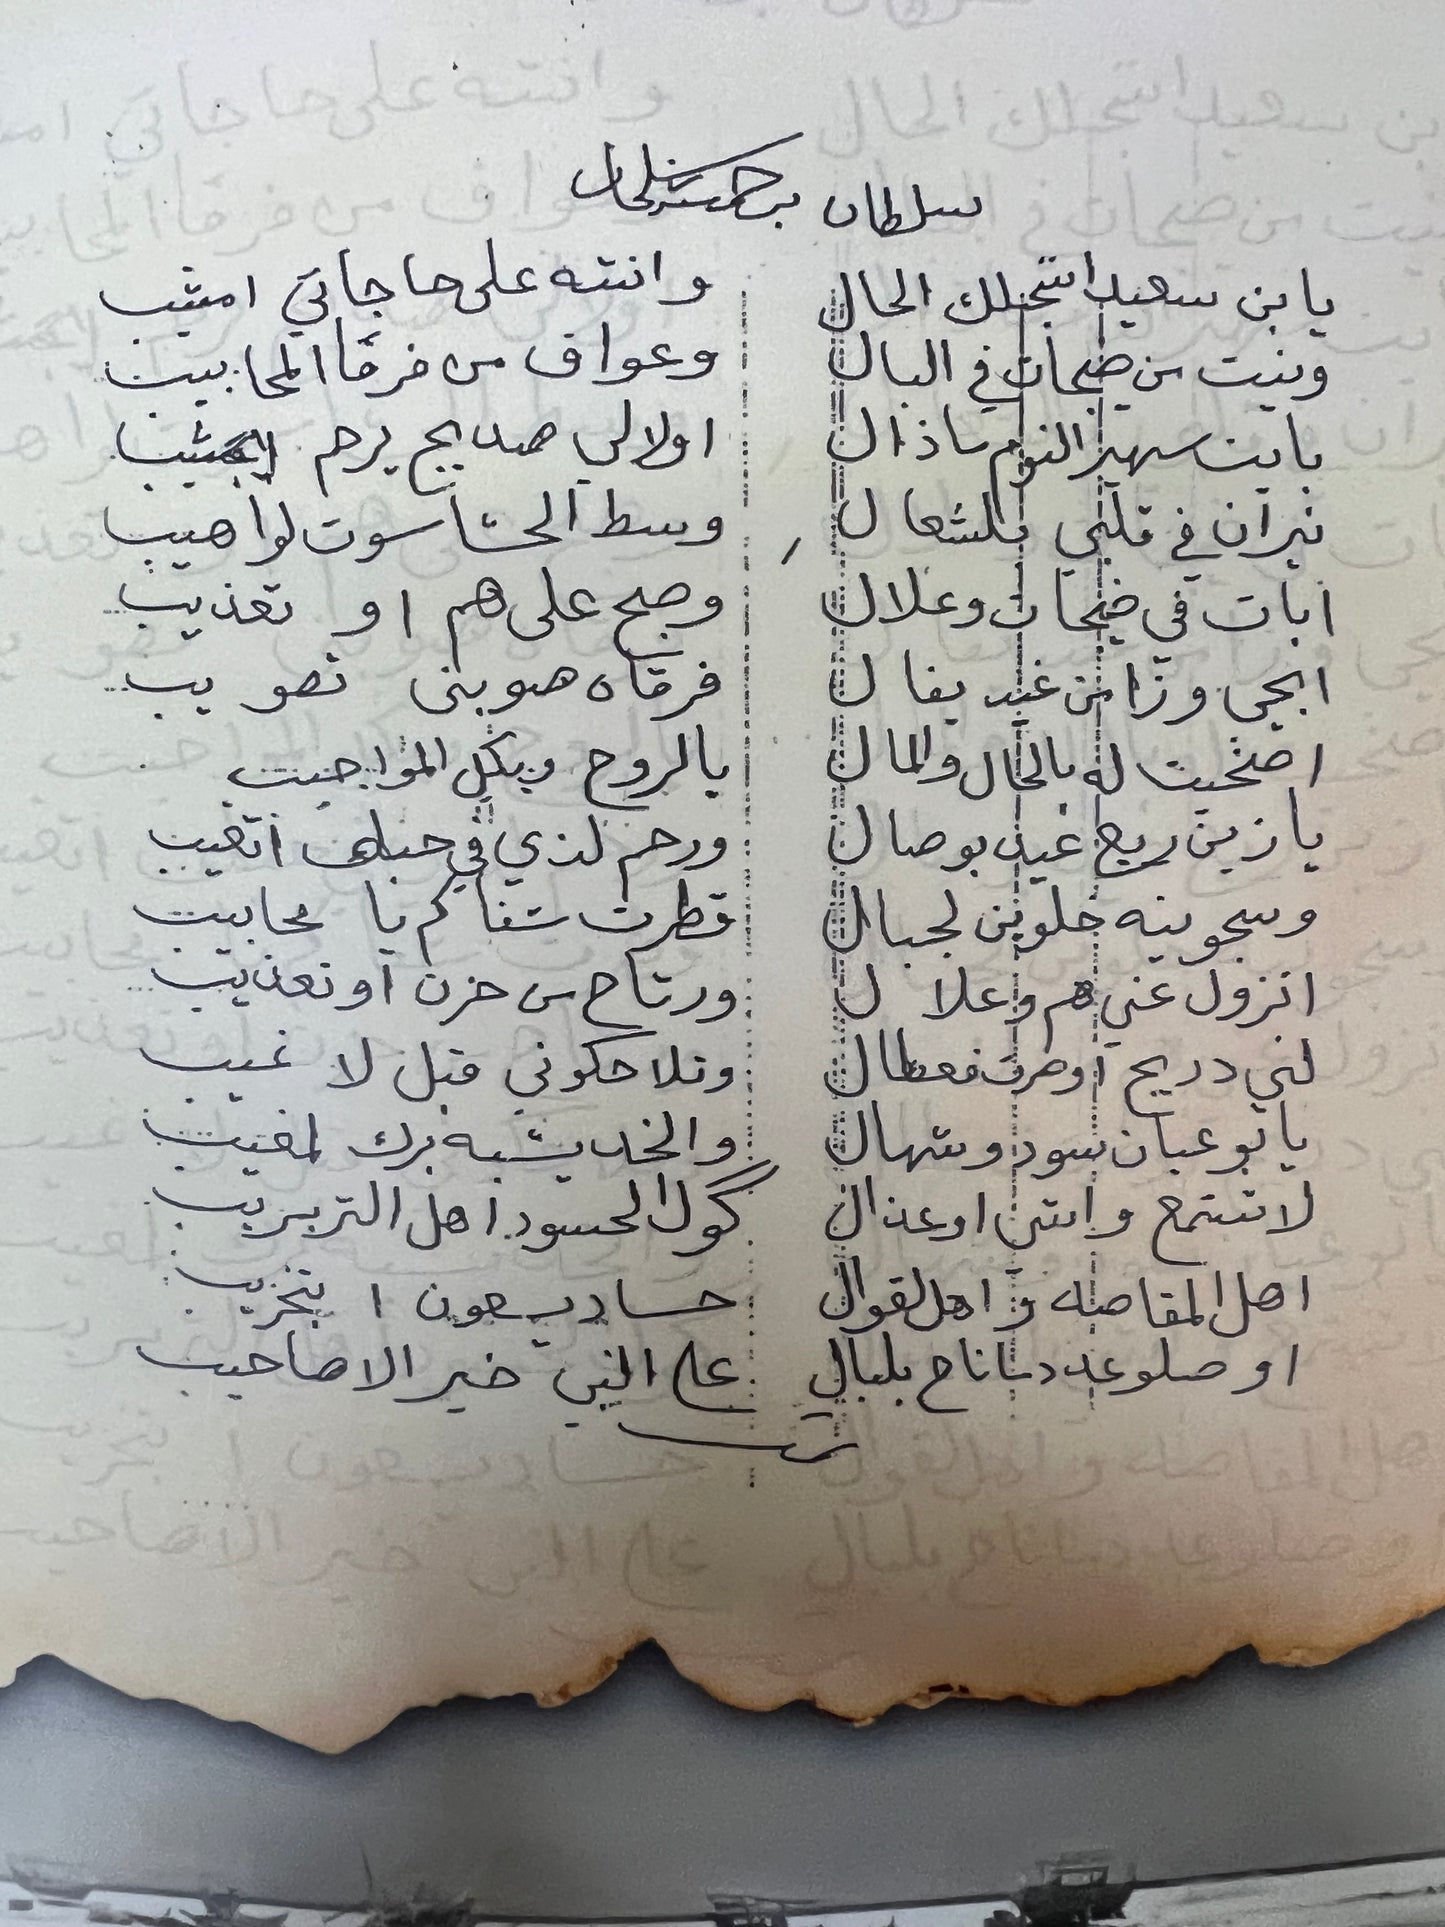 سلطان بن
يا بن سعيد اتجبلك الحال وانته على حاجاتي امثيب
وبيت من ضيحات في البال وعواف من فرقا المحابيب
بايت سهير النوم ماذال اولالي صديج يرحم
نيران في قلبي بالشعال وسط الحشا سوت لواهيب
ابات في ضيحات وعلال وصبح على هم او تعذيب
ابجي وزا من غيد يفال فرقاه صوبني تصويب
اضحيت له بالحال والمال بالروح وبكل المواجيب
يا زين ريع غيد بوصال ورحم لذي في حبلك اتعيب
وسجوبيه خلوين لجبال قطرت شفاكم يا محابيب
انزول عني هم وعلال ورتاح من حزن او تعذيب
لني دريج اوصرت فعطال وتلاحكوني قبل لا غيب
يا بو عيان سود وشهال والخد يشبه برك لمغيب
لا تستمع واشن اوعذال گول الحسود اهل التربريب
اهل المقاصه واهل لقوال حساد يسعون ا بتخريب
او صلو عدد ماناح بلبال على النبي خير الاصاحيب
تمت